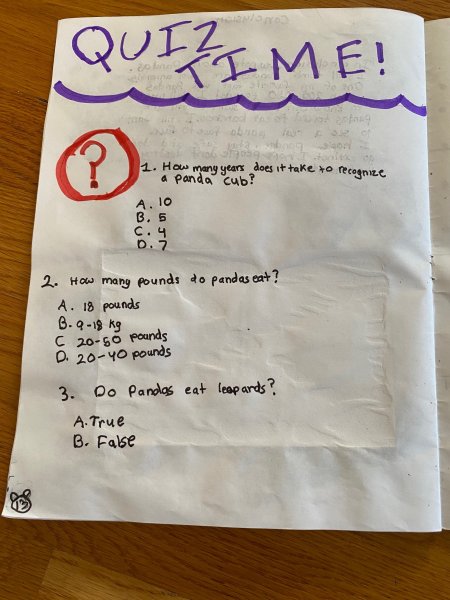 QUIZ
TIME!
?
1. How many years does it take to recognize
a panda cub?
A. 10
B. 5
C. 4
D. 7
2. How many pounds do pandas eat?
A. 18 pounds
B. 9-18 kg
C 20-50 pounds
D. 20-40 pounds
3. Do Pandas eat leopards?
A. True
B. False
13